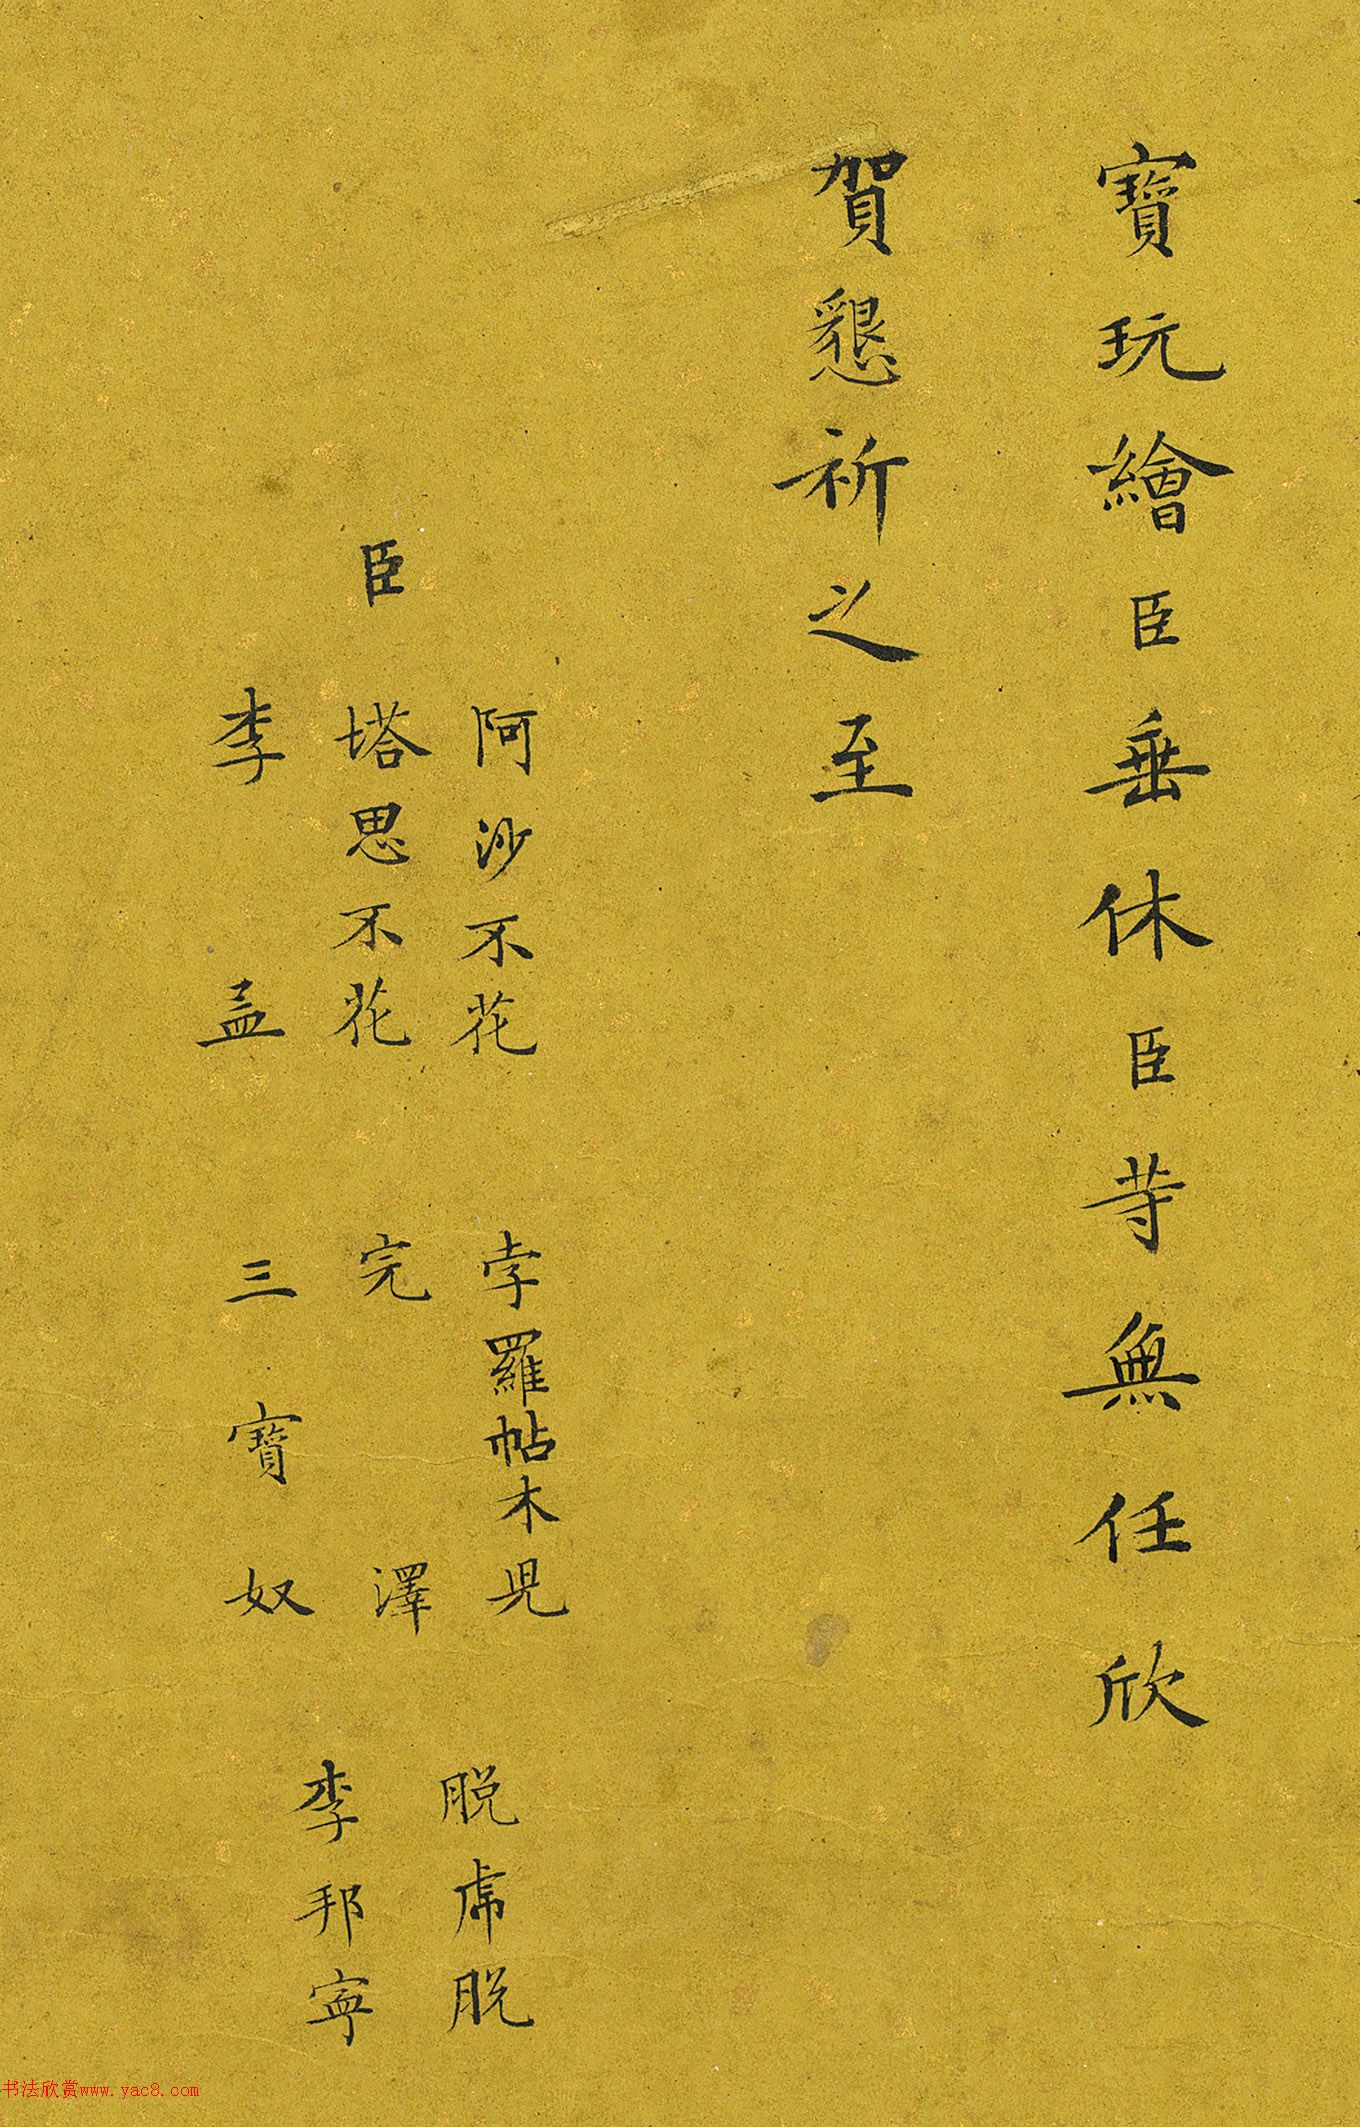 寶玩繪臣垂休臣等無任欣
賀懇祈之至
阿沙不花 孛羅帖木児 脱虎脱
臣 塔思不花 完澤 李邦寧
李孟 三寶奴
书法欣赏www.yac8.com